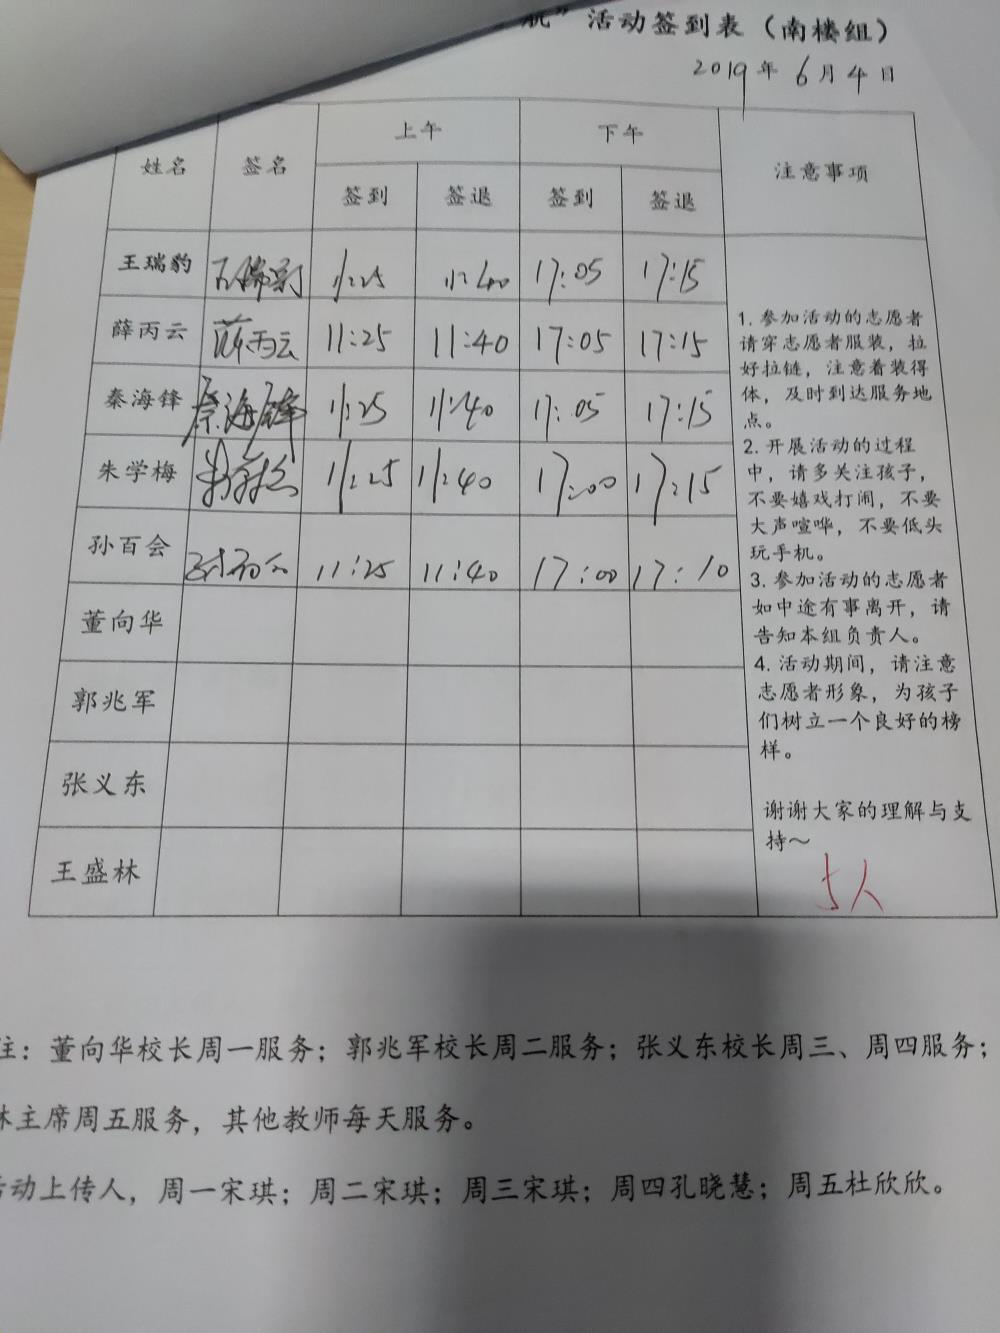 航”活动签到表（南楼组）
2019年6月4日
姓名 签名 上午 下午 注意事项
签到 签退 签到 签退
王瑞豹 王瑞豹 11:25 11:40 17:05 17:15
薛丙云 薛丙云 11:25 11:40 17:05 17:15
秦海锋 秦海锋 11:25 11:40 17:05 17:15
朱学梅 11:25 11:40 17:00 17:15
孙百会 11:25 11:40 17:00 17:10
董向华
郭兆军
张义东
王盛林
1. 参加活动的志愿者
请穿志愿者服装，拉
好拉链，注意着装得
体，及时到达服务地
点。
2. 开展活动的过程
中，请多关注孩子，
不要嬉戏打闹，不要
大声喧哗，不要低头
玩手机。
3. 参加活动的志愿者
如中途有事离开，请
告知本组负责人。
4. 活动期间，请注意
志愿者形象，为孩子
们树立一个良好的榜
样。
谢谢大家的理解与支
持～
5人
注：董向华校长周一服务；郭兆军校长周二服务；张义东校长周三、周四服务；
林主席周五服务，其他教师每天服务。
活动上传人，周一宋琪；周二宋琪；周三宋琪；周四孔晓慧；周五杜欣欣。